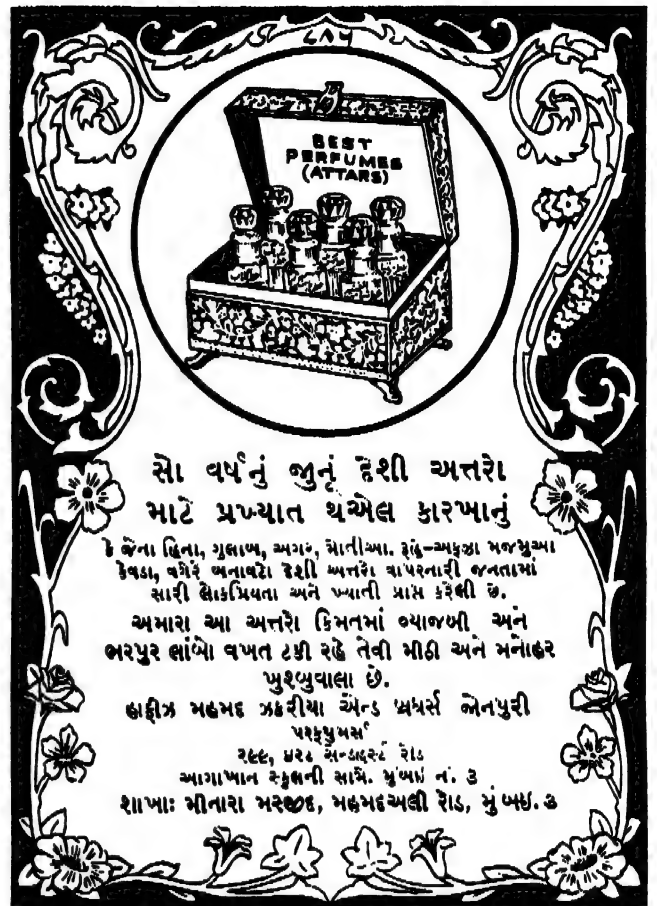 ૮૧૫
BEST
PERFUMES
(ATTARS)
સો વર્ષનું જુનૂં દેશી અત્તરો
માટે પ્રખ્યાત થએલ કારખાનું
કે જેના હિના, ગુલાબ, અગર, મોતીઆ. રૂહે-અફઝા મજમુઆ
કેવડા, વગેરે બનાવટો દેશી અત્તરો વાપરનારી જનતામાં
સારી લોકપ્રિયતા અને ખ્યાતી પ્રાપ્ત કરેલી છે.
અમારા આ અત્તરો કિમતમાં વ્યાજબી અને
ભરપુર લાંબો વખત ટકી રહે તેવી મીઠી અને મનોહર
ખુશ્બુવાલા છે.
હાફીઝ મહમદ ઝકરીયા એન્ડ બ્રધર્સ જોનપુરી
પરફ્યુમર્સ
૨૯૯, ૪૨૮ સેન્ડહર્સ્ટ રોડ
આગાખાન સ્કુલની સામે. મુંબઇ નં. ૩
શાખાઃ મીનારા મસ્જીદ, મહમદઅલી રોડ, મુંબઇ.૩